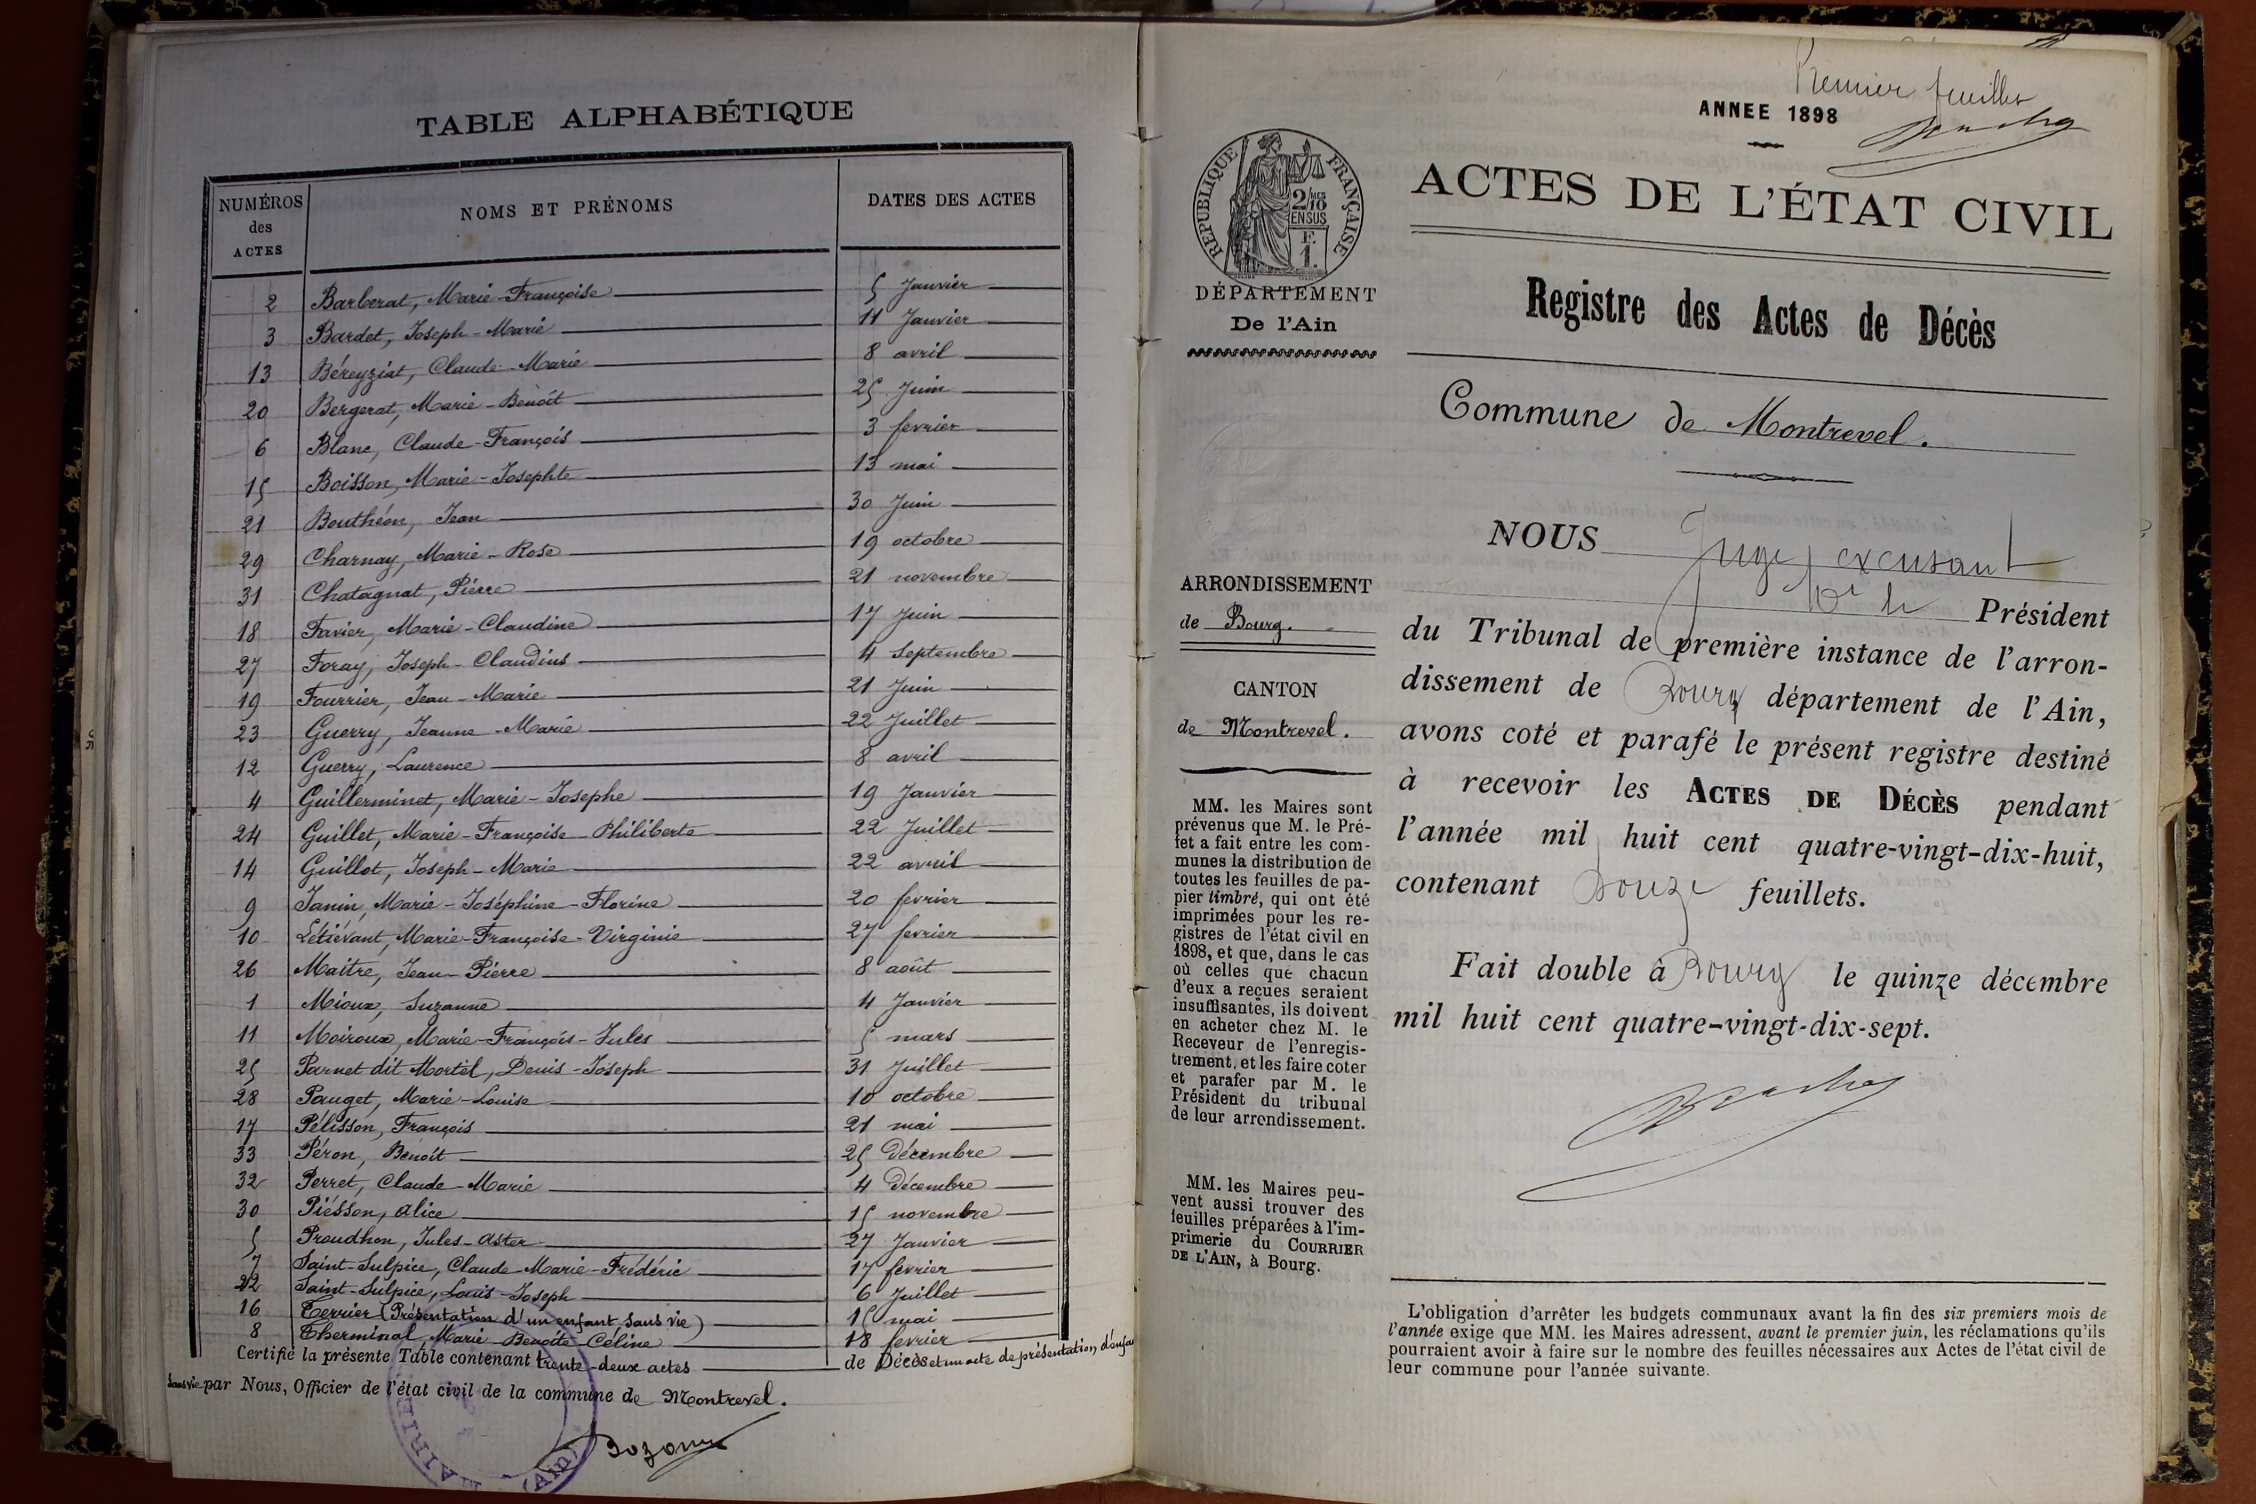 TABLE ALPHABÉTIQUE
NUMÉROS des ACTES NOMS ET PRÉNOMS DATES DES ACTES
2 Barberat, Marie-Françoise 5 Janvier
3 Bardet, Joseph-Marie 11 Janvier
13 Béreyziat, Claude-Marie 8 avril
20 Bergerat, Marie-Benoît 25 Juin
6 Blanc, Claude-François 3 fevrier
15 Boisson, Marie-Josephte 13 mai
21 Bouthéon, Jean 30 Juin
29 Charnay, Marie-Rose 19 octobre
31 Chatagnat, Pierre 21 novembre
18 Favier, Marie-Claudine 17 Juin
27 Foray, Joseph-Claudius 4 Septembre
19 Fourrier, Jean-Marie 21 Juin
23 Guerry, Jeanne-Marie 22 Juillet
12 Guerry, Laurence 8 avril
4 Guillerminet, Marie-Josephe 19 Janvier
24 Guillet, Marie-Françoise-Philiberte 22 Juillet
14 Guillot, Joseph-Marie 22 avril
9 Janin, Marie-Joséphine-Florine 20 fevrier
10 Létiévant, Marie-Françoise-Virginie 27 fevrier
26 Maitre, Jean-Pierre 8 août
1 Mioux, Suzanne 4 Janvier
11 Moiroux, Marie-François-Jules 5 mars
25 Parnet dit Mortel, Denis-Joseph 31 Juillet
28 Pauget, Marie-Louise 10 octobre
17 Pélisson, François 21 mai
33 Péron, Benoît 25 Décembre
32 Perret, Claude-Marie 4 Décembre
30 Piésson, alice 15 novembre
5 Proudhon, Jules-Aster 27 Janvier
7 Saint-Sulpice, Claude-Marie-Frédéric 17 fevrier
22 Saint-Sulpice, Louis-Joseph 6 Juillet
16 Terrier (Présentation d'un enfant sans vie) 15 mai
8 Therminal, Marie-Benoite-Céline 18 fevrier
Certifié la présente Table contenant trente-deux actes de Décès et un acte de présentation d'enfant
sans vie par Nous, Officier de l'état civil de la commune de Montrevel.
MAIRIE
(Ain)
Premier feuillet
ANNEE 1898
ACTES DE L'ÉTAT CIVIL
RÉPUBLIQUE FRANÇAISE
2/10
EN SUS
F.
1.
DÉPARTEMENT
De l'Ain
Registre des Actes de Décès
Commune de Montrevel.
ARRONDISSEMENT
de Bourg.
CANTON
de Montrevel.
MM. les Maires sont
prévenus que M. le Pré-
fet a fait entre les com-
munes la distribution de
toutes les feuilles de pa-
pier timbré, qui ont été
imprimées pour les re-
gistres de l'état civil en
1898, et que, dans le cas
où celles que chacun
d'eux a reçues seraient
insuffisantes, ils doivent
en acheter chez M. le
Receveur de l'enregis-
trement, et les faire coter
et parafer par M. le
Président du tribunal
de leur arrondissement.
MM. les Maires peu-
vent aussi trouver des
feuilles préparées à l'im-
primerie du COURRIER
DE L'AIN, à Bourg.
NOUS Juge excusant
Président
du Tribunal de première instance de l'arron-
dissement de Bourg département de l'Ain,
avons coté et parafé le présent registre destiné
à recevoir les ACTES DE DÉCÈS pendant
l'année mil huit cent quatre-vingt-dix-huit,
contenant Douze feuillets.
Fait double à Bourg le quinze décembre
mil huit cent quatre-vingt-dix-sept.
L'obligation d'arrêter les budgets communaux avant la fin des six premiers mois de
l'année exige que MM. les Maires adressent, avant le premier juin, les réclamations qu'ils
pourraient avoir à faire sur le nombre des feuilles nécessaires aux Actes de l'état civil de
leur commune pour l'année suivante.